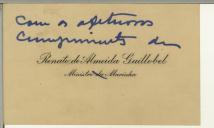 Com os afetuosos
cumprimentos de
Renato de Almeida Guillobel
Ministro da Marinha